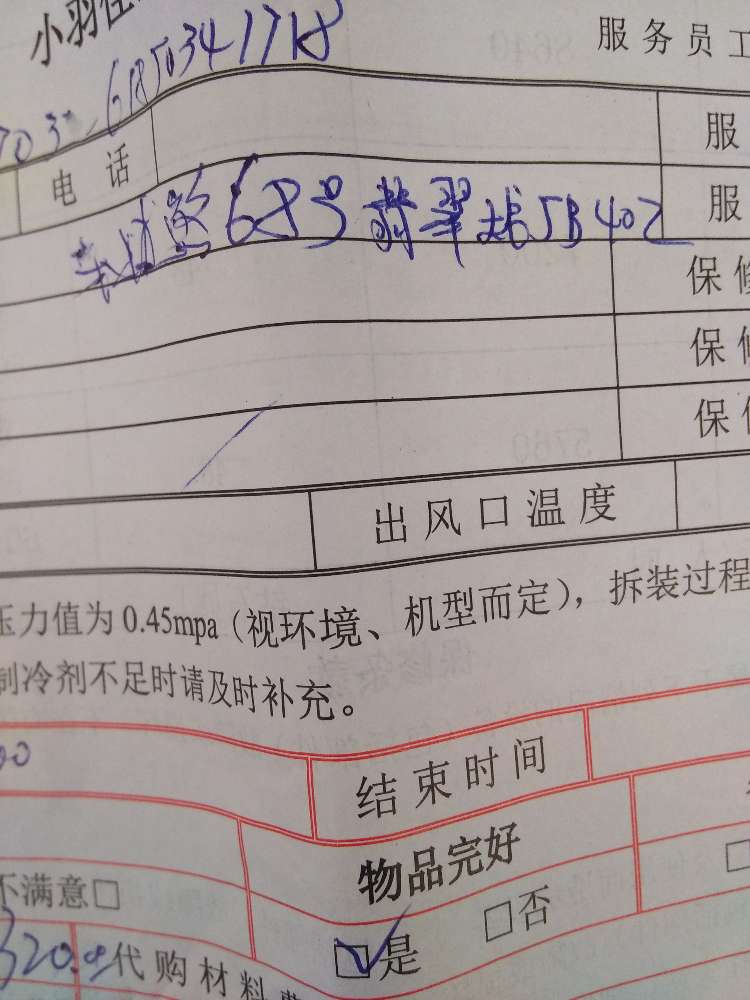 小羽佳
服务员工
61850341718
电话 服
68号翡翠城5B402 服
保修
保修
保修
出风口温度
压力值为0.45mpa（视环境、机型而定），拆装过程
制冷剂不足时请及时补充。
00 结束时间
物品完好
不满意□
☑是 □否
320.0 代购材料费